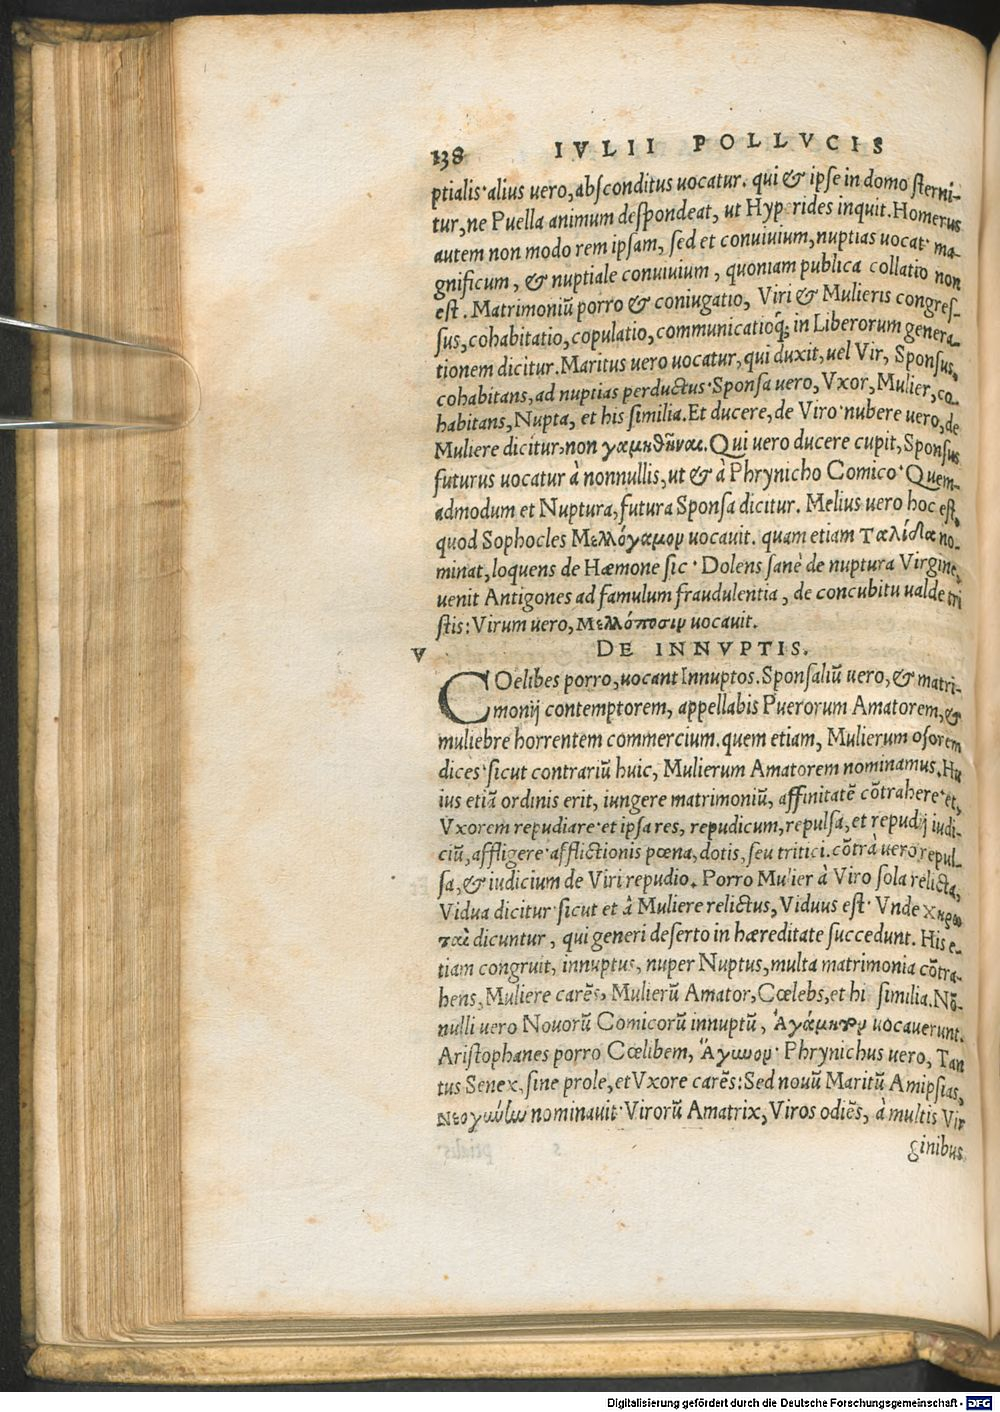 138 IVLII POLLVCIS
ptialis·alius uero, absconditus uocatur. qui & ipse in domo sterni-
tur, ne Puella animum despondeat, ut Hyperides inquit. Homerus
autem non modo rem ipsam, sed et conuiuium, nuptias uocat· ma-
gnificum, & nuptiale conuiuium, quoniam publica collatio non
est. Matrimoniū porro & coniugatio, Viri & Mulieris congres-
sus, cohabitatio, copulatio, communicatioq́; in Liberorum genera-
tionem dicitur. Maritus uero uocatur, qui duxit, uel Vir, Sponsus,
cohabitans, ad nuptias perductus·Sponsa uero, Vxor, Mulier, co-
habitans, Nupta, et his similia. Et ducere, de Viro·nubere uero, de
Muliere dicitur, non γαμηθῆναι. Qui uero ducere cupit, Sponsus
futurus uocatur à nonnullis, ut & à Phrynicho Comico·Quem-
admodum et Nuptura, futura Sponsa dicitur. Melius uero hoc est,
quod Sophocles Μελλόγαμον uocauit. quam etiam Ταλίδα no-
minat, loquens de Hæmone sic·Dolens sanè de nuptura Virgine,
uenit Antigones ad famulum fraudulentia, de concubitu ualde tri
stis: Virum uero, Μελλόποσιν uocauit.
V DE INNVPTIS.
COelibes porro, uocant Innuptos. Sponsaliū uero, & matri-
monij contemptorem, appellabis Puerorum Amatorem, &
muliebre horrentem commercium. quem etiam, Mulierum osorem
dices·sicut contrariū huic, Mulierum Amatorem nominamus. Hu
ius etiā ordinis erit, iungere matrimoniū, affinitatē cōtrahere·et,
Vxorem repudiare·et ipsa res, repudicum, repulsa, et repudij iudi-
ciū, affligere·afflictionis pœna, dotis, seu tritici. cōtrà uero repul-
sa, & iudicium de Viri repudio. Porro Mulier à Viro sola relicta,
Vidua dicitur·sicut et à Muliere relictus, Viduus est·Vnde χηρω
ταὶ dicuntur, qui generi deserto in hæreditate succedunt. His e-
tiam congruit, innuptus, nuper Nuptus, multa matrimonia cōtra-
hens, Muliere carēs, Mulierū Amator, Cœlebs, et hi similia. Nō-
nulli uero Nouorū Comicorū innuptū, Ἀγάμητον uocauerunt.
Aristophanes porro Cœlibem, Ἄγωνον·Phrynichus uero, Tan
tus Senex, sine prole, et Vxore carēs: Sed nouū Maritū Amipsias,
nominauit·Virorū Amatrix, Viros odiēs, à multis Vir
ginibus
Digitalisierung gefördert durch die Deutsche Forschungsgemeinschaft - DFG